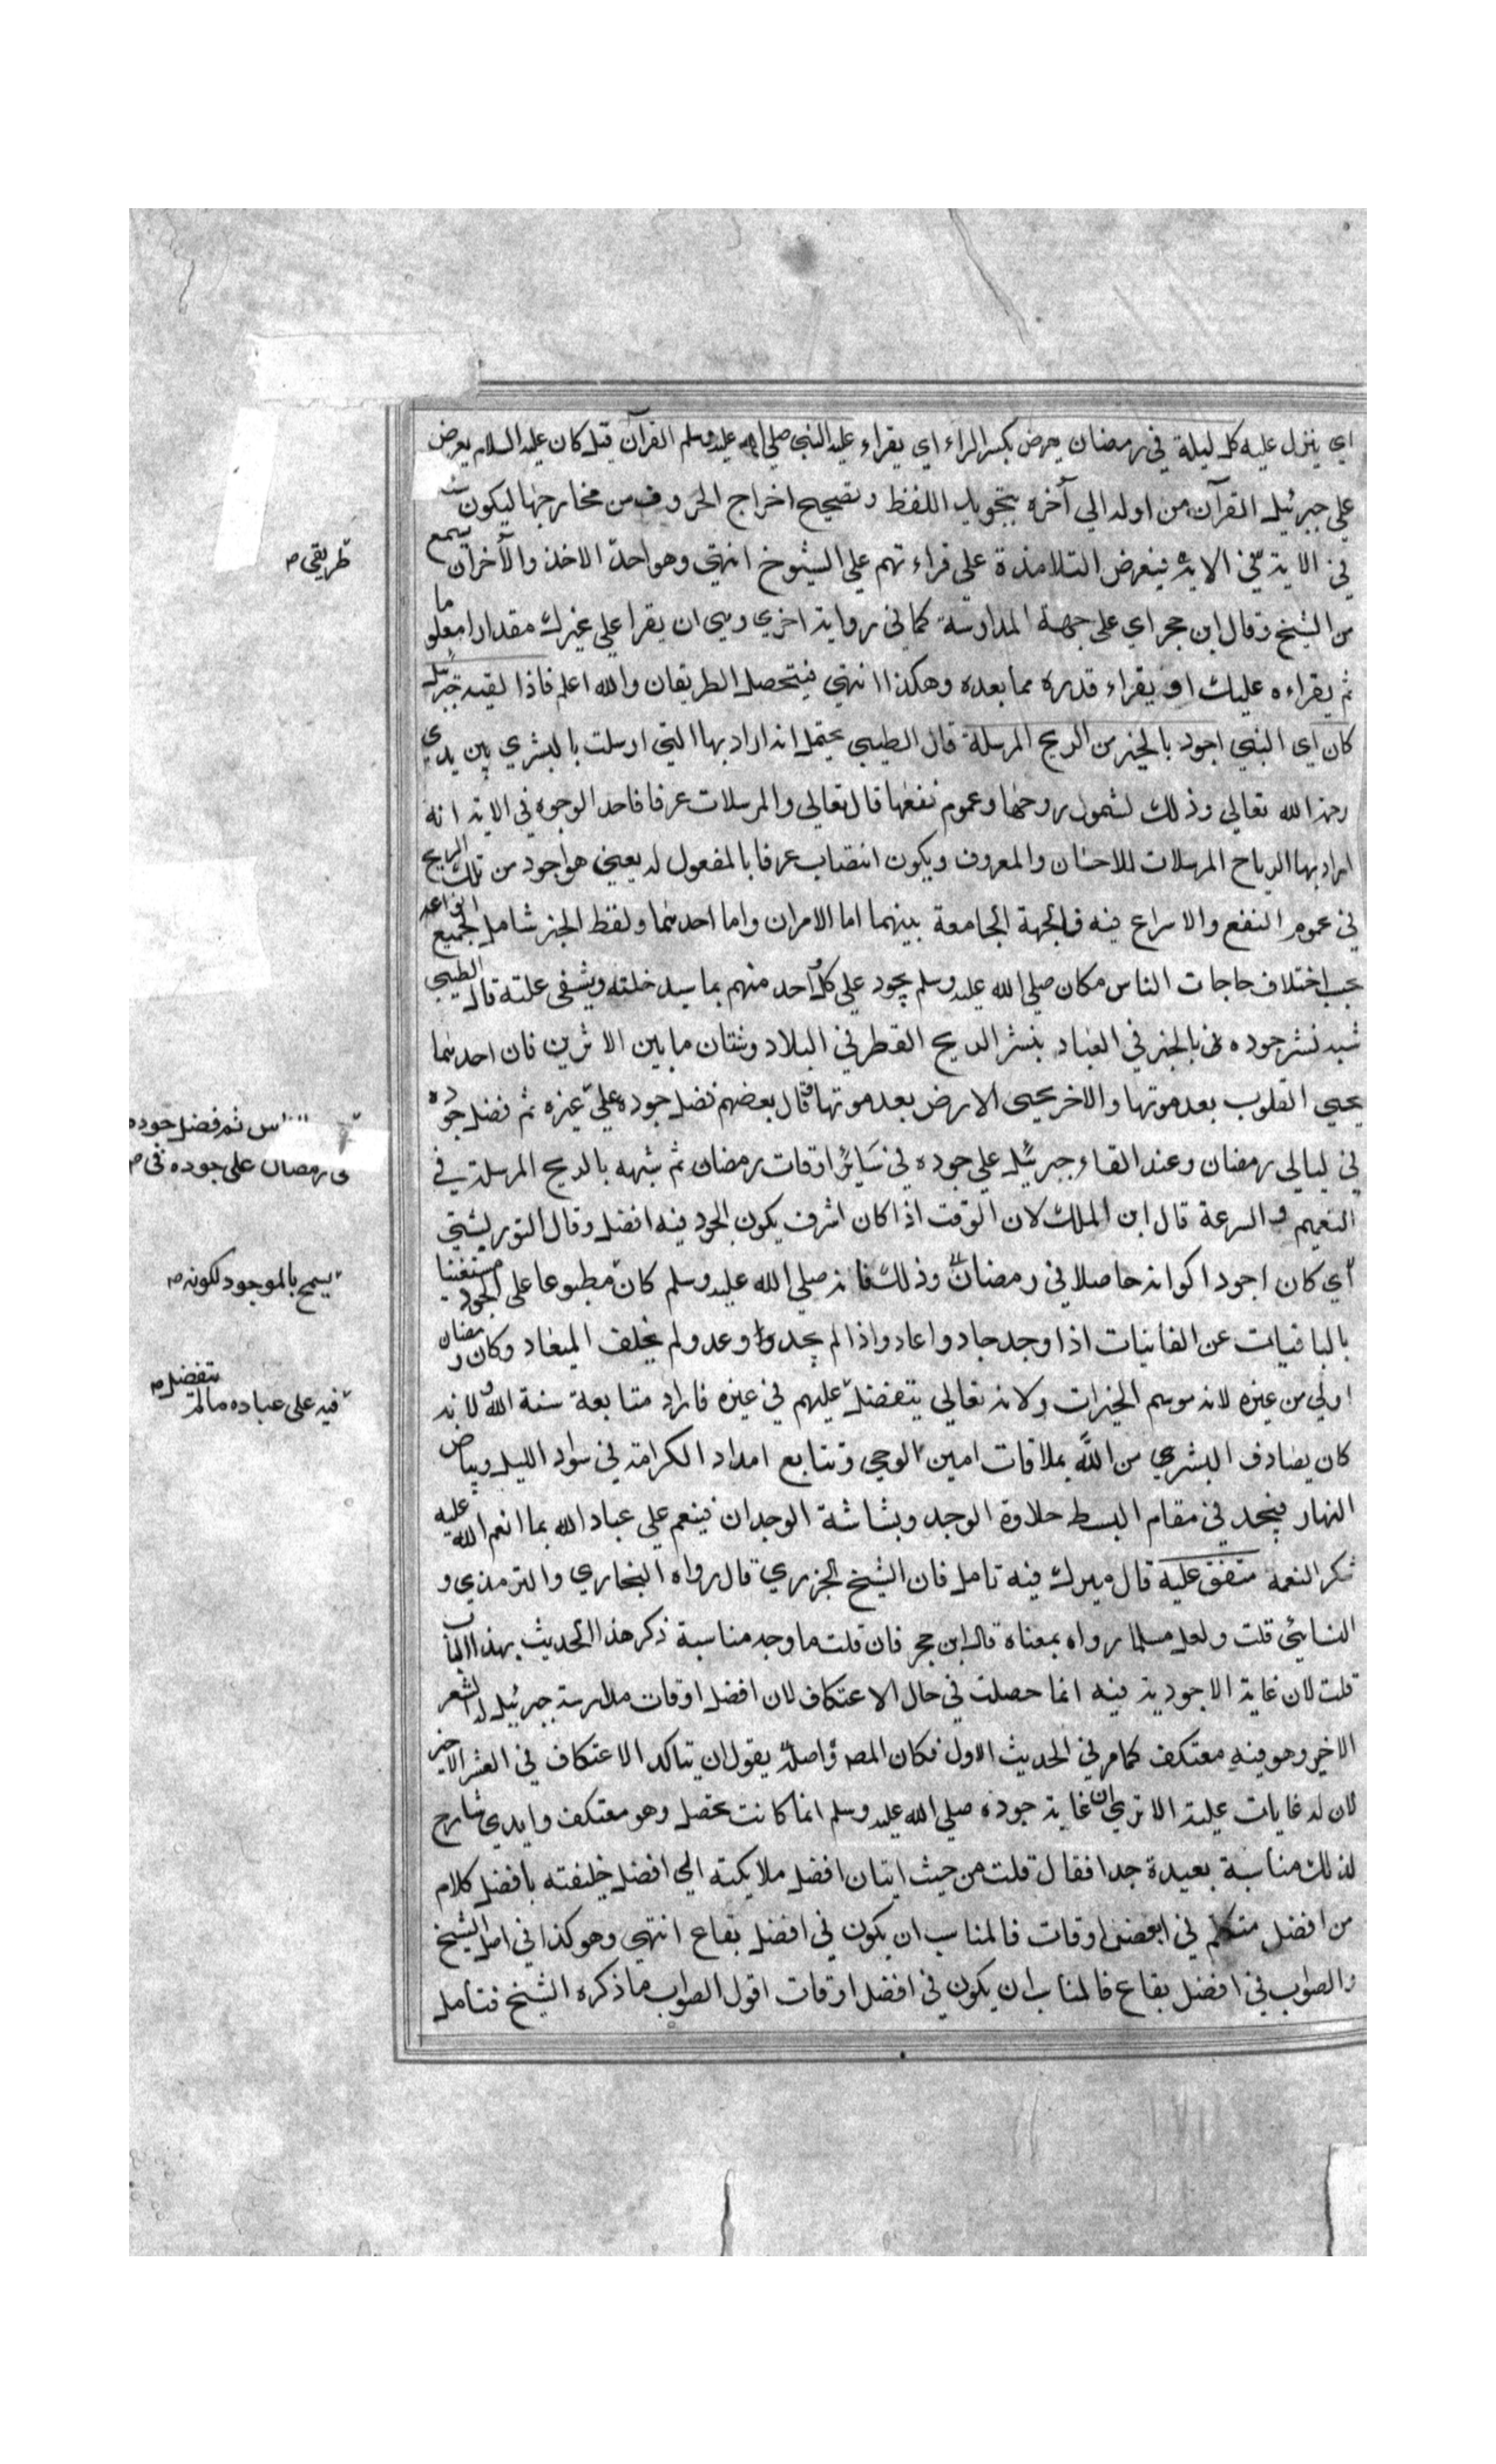 اي ينزل عليه كل ليلة في رمضان يعرض بكسر الراء اي يقراء عليه النبي صلى الله عليه وسلم القرآن قيل كان عليه السلام يعرض
على جبرئيل القرآن من اوله الي آخره بتجويد اللفظ وتصحيح اخراج الحروف من مخارجها ليكون
في الاية فيعرض التلامذة علي قراءتهم علي الشيوخ انتهى وهو احد الاخذ والآخر ان يسمع
من الشيخ وقال ابن حجر اي على جهة المدارسة كما في رواية اخري وهي ان يقرا علي غيرك مقدارا معلوما
ثم يقراءه عليك او يقراء قدره مما بعده وهكذا انتهي فيتحصل الطريقان والله اعلم فاذا لقيه جبرئيل
كان اي النبي اجود بالخير من الريح المرسلة قال الطيبي يحتمل انه اراد بها التي ارسلت بالبشري بين يدي
رحمة الله تعالي وذلك لشمول روحها وعموم نفعها قال تعالي والمرسلات عرفا فاحد الوجوه في الاية انه
اراد بها الرياح المرسلات للاحسان والمعروف ويكون انتصاب عرفا بالمفعول له يعني هو اجود من تلك الريح
في عموم النفع والاسراع فيه فالجهة الجامعة بينهما اما الامران واما احدهما ولفظ الخير شامل لجميع انواعه
بحسب اختلاف حاجات الناس وكان صلي الله عليه وسلم يجود علي كل احد منهم بما يسد خلته ويشفي علته قال الطيبي
شبه نشر جوده بالخير في العباد بنشر الريح القطر في البلاد وشتان ما بين الاثرين فان احدهما
يحيي القلوب بعد موتها والاخر يحيي الارض بعد موتها وقال بعضهم فضل جوده علي غيره ثم فضل جوده
في ليالي رمضان وعند لقاء جبرئيل علي جوده في سائر اوقات رمضان ثم شبهه بالريح المرسلة في
التعميم والسرعة قال ابن الملك لان الوقت اذا كان اشرف يكون الجود فيه افضل وقال التوربشتي
اي كان اجود اكوانه حاصلا في رمضان وذلك فانه صلي الله عليه وسلم كان مطبوعا على الجود مستغنيا
بالباقيات عن الفانيات اذا وجد جاد واعاد واذا لم يجد وعد ولم يخلف الميعاد وكان رمضان
اولي من غيره لانه موسم الخيرات ولانه تعالي يتفضل عليهم في غيره فاراد متابعة سنة الله ولانه
كان يصادف البشري من الله بملاقات امين الوحي وتتابع امداد الكرامة في سواد الليل وبياض
النهار فيجد في مقام البسط حلاوة الوجد وبشاشة الوجدان فينعم علي عباد الله بما انعم الله عليه
شكر النعمه متفق عليه قال ميرك فيه تامل فان الشيخ الجزري قال رواه البخاري والترمذي و
النسائي قلت ولعل مسلما رواه بمعناه قال ابن حجر فان قلت ما وجه مناسبة ذكر هذا الحديث بهذا الباب
قلت لان غاية الاجودية فيه انما حصلت في حال الاعتكاف لان افضل اوقات مدارسة جبرئيل له العشر
الاخير وهو فيه معتكف كما مر في الحديث الاول فكان المصـ واصله يقول ان يتاكد الاعتكاف في العشر الاخير
لان له غايات علية الا تري ان غاية جوده صلي الله عليه وسلم انما كانت تحصل وهو معتكف وابدي شارح
لذلك مناسبة بعيدة جدا فقال قلت من حيث اتيان افضل ملايكته الي افضل خليفته بافضل كلام
من افضل متكلم في افضل اوقات فالمناسب ان يكون في افضل بقاع انتهي وهو كذا في اصل الشيخ
والصواب في افضل بقاع فالمناسب ان يكون في افضل اوقات اقول الصواب ما ذكره الشيخ فتامل
طريقى
الناس ثم فضل جوده
فى رمضان على جوده فى
يسمح بالموجود لكونه
يتفضل
فيه على عباده مالم